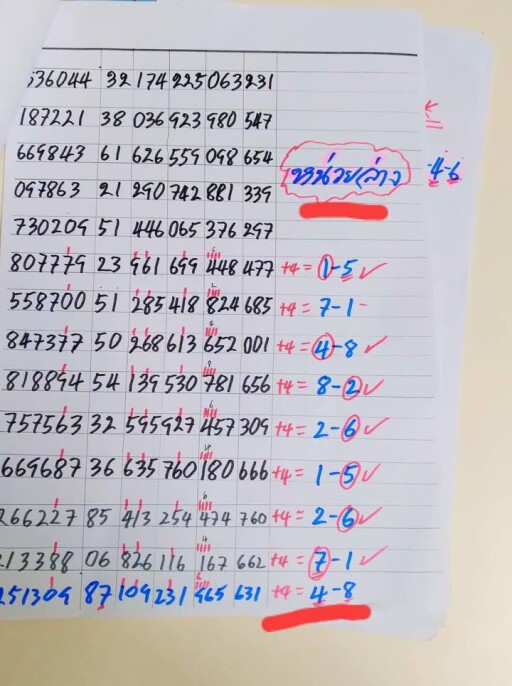 536044 32 174 225 063 231
187221 38 036 923 980 547
669843 61 626 559 098 654
หน่วยล่าง
-4-6
097863 21 290 742 881 339
730209 51 446 065 376 297
807779 23 961 699 448 477 +4 = 1-5 ✓
558700 51 285 418 824 685 +4 = 7-1 -
847377 50 268 613 652 001 +4 = 4-8 ✓
818894 54 139 530 781 656 +4 = 8-2 ✓
757563 32 595 927 457 309 +4 = 2-6 ✓
669687 36 635 760 180 666 +4 = 1-5 ✓
266227 85 413 254 474 760 +4 = 2-6 ✓
213388 06 826 116 167 662 +4 = 7-1 ✓
251309 87 109 231 965 631 +4 = 4-8